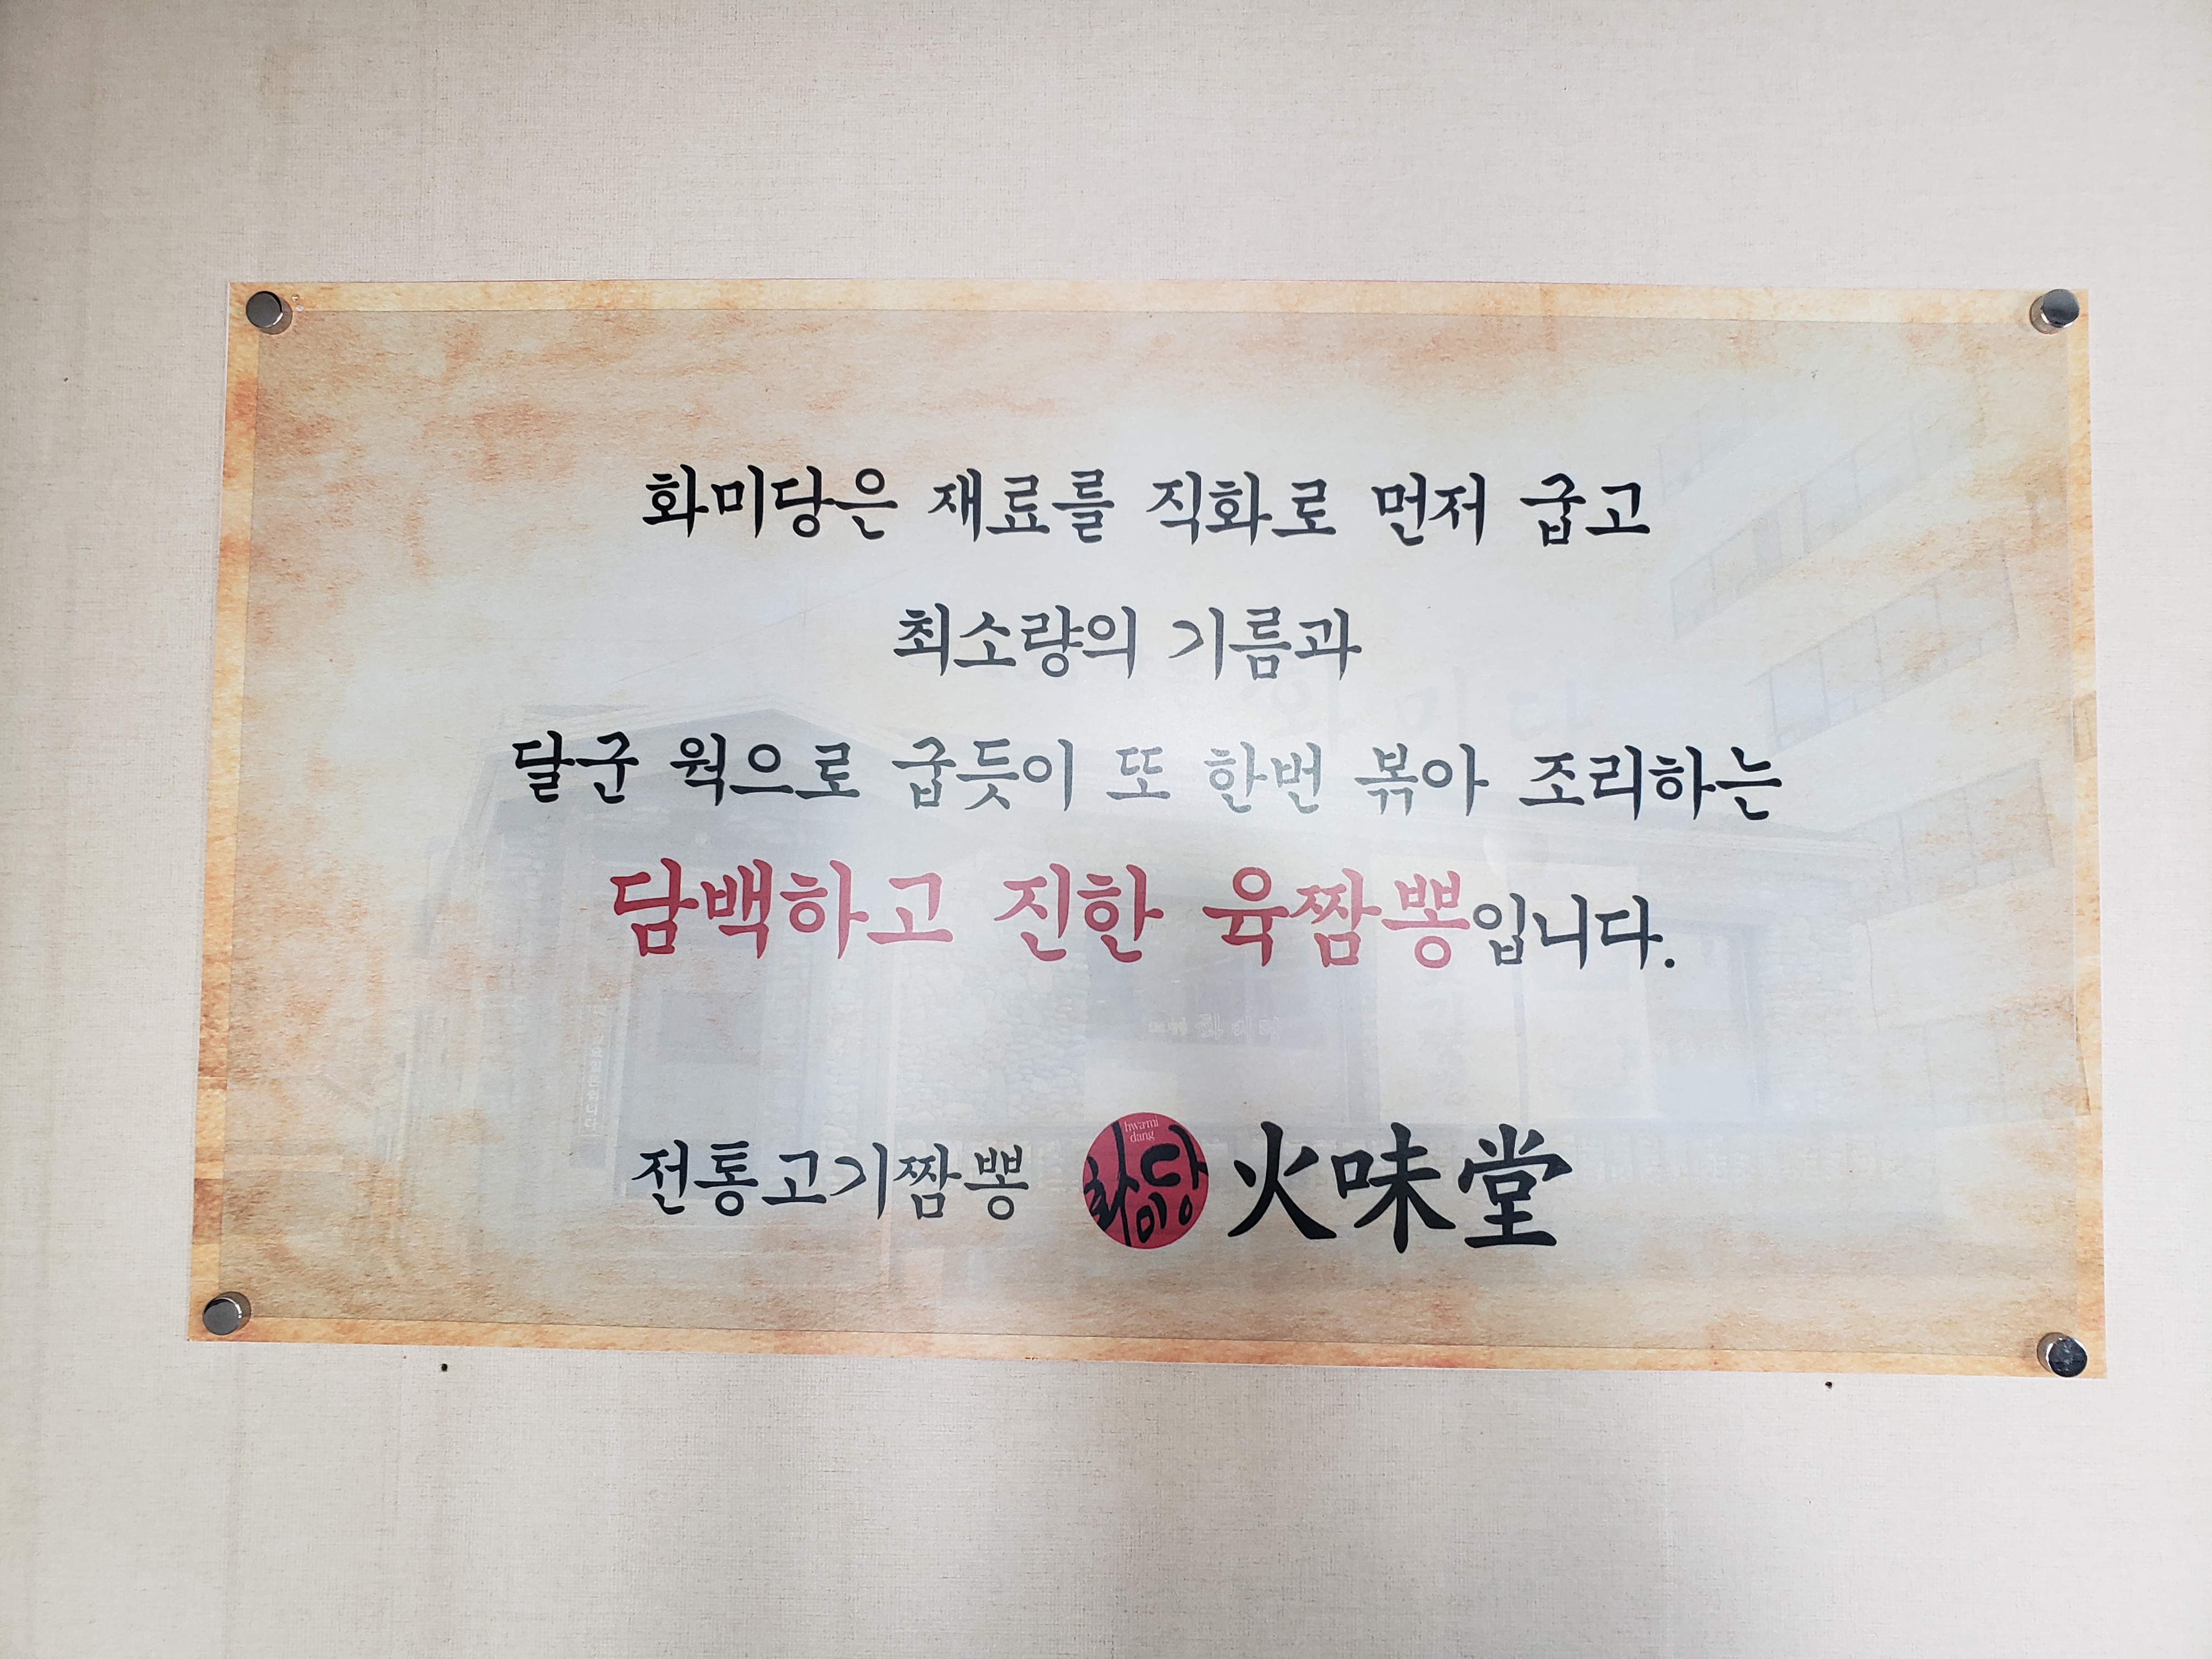 화미당은 재료를 직화로 먼저 굽고
최소량의 기름과
달군 웍으로 굽듯이 또 한번 볶아 조리하는
담백하고 진한 육짬뽕입니다.
전통고기짬뽕 hwami dang 화미당 火味堂
화미당